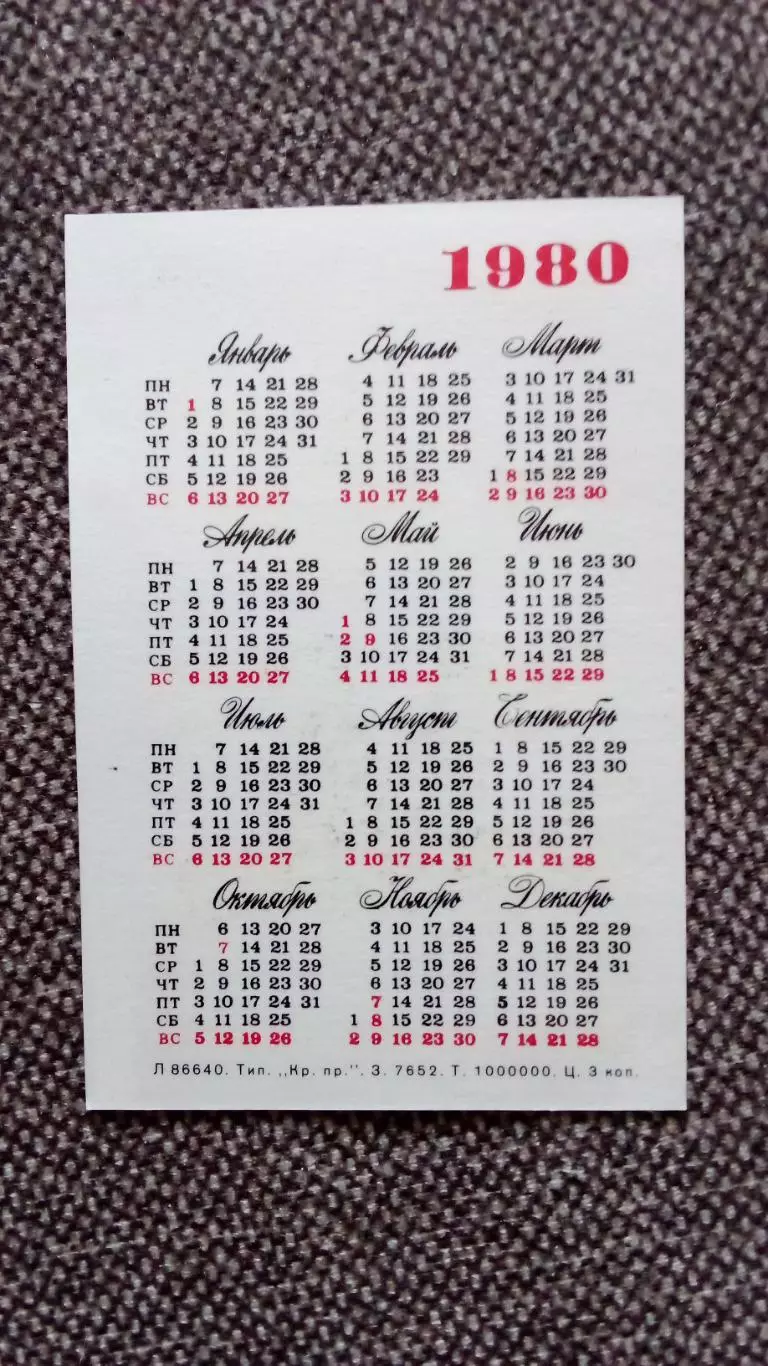 1980
Январь Февраль Март
ПН 7 14 21 28 4 11 18 25 3 10 17 24 31
ВТ 1 8 15 22 29 5 12 19 26 4 11 18 25
СР 2 9 16 23 30 6 13 20 27 5 12 19 26
ЧТ 3 10 17 24 31 7 14 21 28 6 13 20 27
ПТ 4 11 18 25 1 8 15 22 29 7 14 21 28
СБ 5 12 19 26 2 9 16 23 1 8 15 22 29
ВС 6 13 20 27 3 10 17 24 2 9 16 23 30
Апрель Май Июнь
ПН 7 14 21 28 5 12 19 26 2 9 16 23 30
ВТ 1 8 15 22 29 6 13 20 27 3 10 17 24
СР 2 9 16 23 30 7 14 21 28 4 11 18 25
ЧТ 3 10 17 24 1 8 15 22 29 5 12 19 26
ПТ 4 11 18 25 2 9 16 23 30 6 13 20 27
СБ 5 12 19 26 3 10 17 24 31 7 14 21 28
ВС 6 13 20 27 4 11 18 25 1 8 15 22 29
Июль Август Сентябрь
ПН 7 14 21 28 4 11 18 25 1 8 15 22 29
ВТ 1 8 15 22 29 5 12 19 26 2 9 16 23 30
СР 2 9 16 23 30 6 13 20 27 3 10 17 24
ЧТ 3 10 17 24 31 7 14 21 28 4 11 18 25
ПТ 4 11 18 25 1 8 15 22 29 5 12 19 26
СБ 5 12 19 26 2 9 16 23 30 6 13 20 27
ВС 6 13 20 27 3 10 17 24 31 7 14 21 28
Октябрь Ноябрь Декабрь
ПН 6 13 20 27 3 10 17 24 1 8 15 22 29
ВТ 7 14 21 28 4 11 18 25 2 9 16 23 30
СР 1 8 15 22 29 5 12 19 26 3 10 17 24 31
ЧТ 2 9 16 23 30 6 13 20 27 4 11 18 25
ПТ 3 10 17 24 31 7 14 21 28 5 12 19 26
СБ 4 11 18 25 1 8 15 22 29 6 13 20 27
ВС 5 12 19 26 2 9 16 23 30 7 14 21 28
Л 86640. Тип. „Кр. пр.". З. 7652. Т. 1000000. Ц. 3 коп.